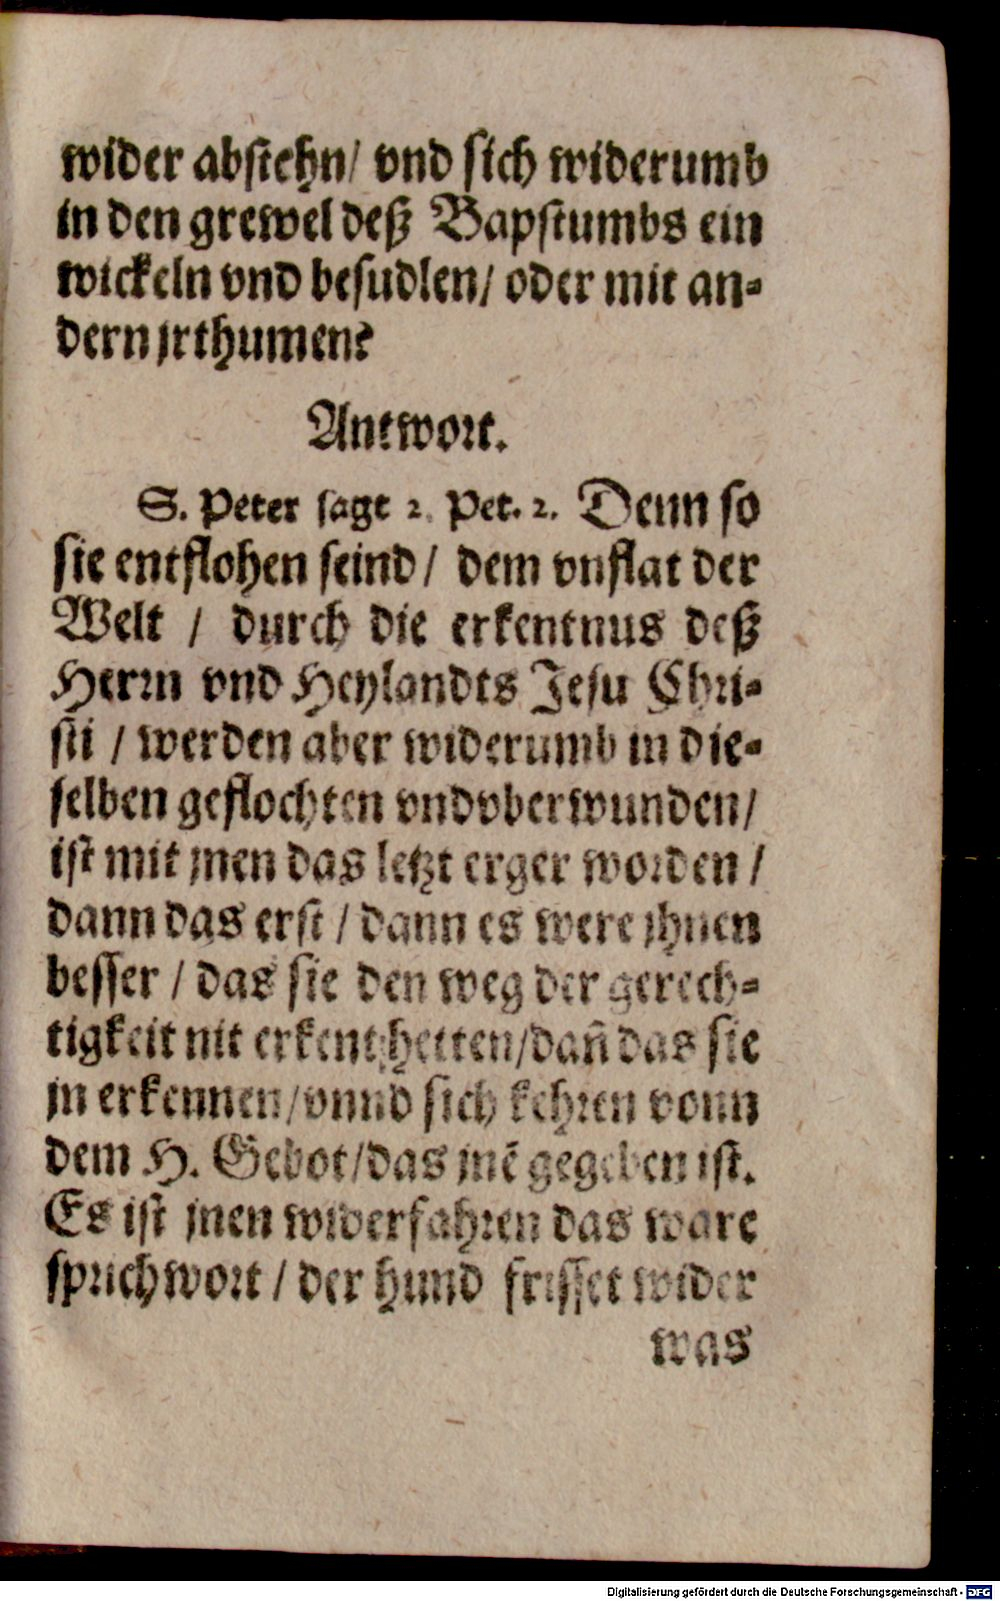 wider abstehn/ vnd sich widerumb
in den grewel deß Bapstumbs ein
wickeln vnd besudlen/ oder mit an-
dern jrthumen?
Antwort.
S. Peter sagt 2. Pet. 2. Denn so
sie entflohen seind / dem vnflat der
Welt / durch die erkentnus deß
Herrn vnd Heylandts Jesu Chri-
sti / werden aber widerumb in die-
selben geflochten vndvberwunden/
ist mit jnen das letzt erger worden /
dann das erst / dann es were jhnen
besser / das sie den weg der gerech-
tigkeit nit erkent hetten/dañ das sie
jn erkennen/vnnd sich kehren vonn
dem H. Gebot/das jnẽ gegeben ist.
Es ist jnen widerfahren das ware
sprichwort / der hund frisset wider
was
Digitalisierung gefördert durch die Deutsche Forschungsgemeinschaft - DFG